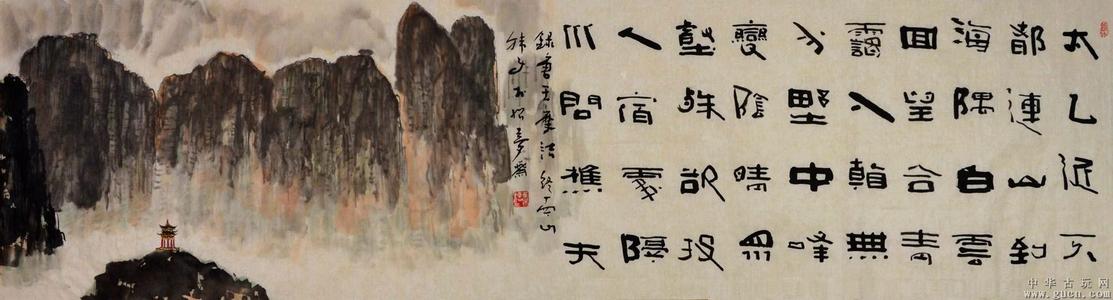 太乙近天
都連山到
海隅白雲
回望合青
靄入看無
分野中峰
變陰晴眾
壑殊欲投
人宿處隔
水問樵夫
錄唐王摩詰終南山
夢齋
中华古玩网
www.gucn.com